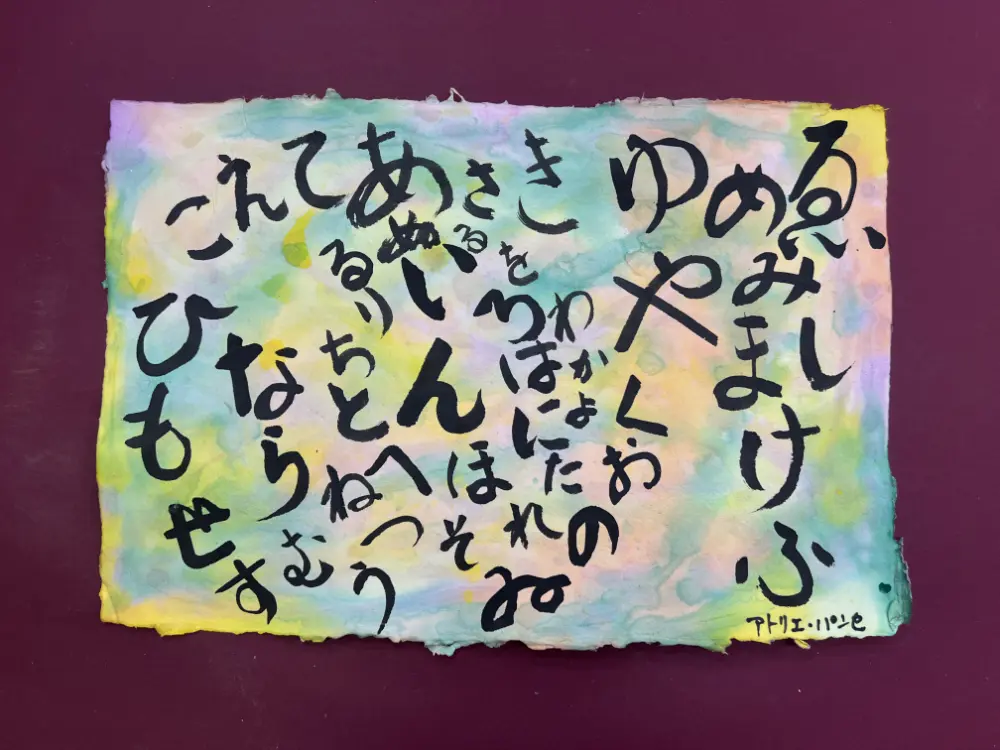 ゑ
めみし
まけふ
ゆやくおのゐ
きをわかよたれそ
さるろはにほへ
あぬいん
てるりちとねつう
えならむ
こひもせす
アトリエ・パンセ